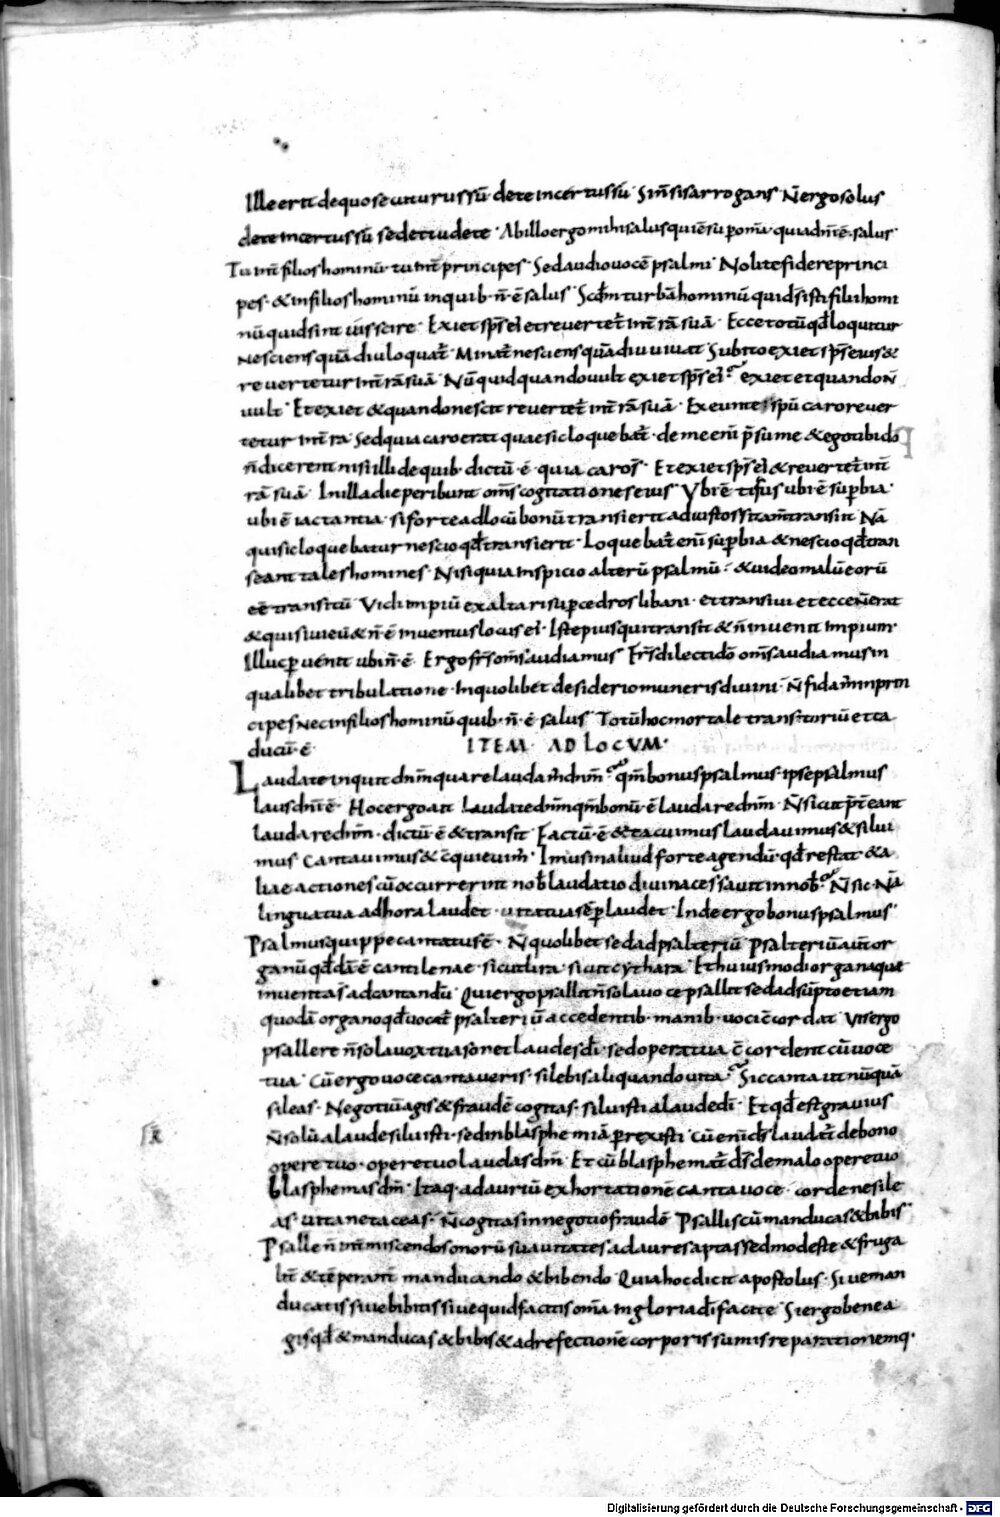 Ille erit de quo securus sū de te incertus sū Sin̄ sis arrogans N̄ ergo solus
de te incertus sū sed et iu de te Ab illo ergo mihi salus qui ē sup om̄a quia dn̄i ē salus
Tu int̄ filios hominū tu int̄ principes Sed audio vocē psalmi Nolite fidere princi
pes & in filios hominū in quib n̄ ē salus Scdm turbā hominū quid s̄ isti filii homi
nū quid sint vis scire Exiet sp̄s ei et revertet̄ int̄rā suā Ecce totū qd̄ loquitur
nesciens quādiu loquat̄ Minat̄ nesciens quādiu vivat Subito exiet sp̄s eius &
revertetur int̄rā suā Nūquid quando vult exiet sp̄s ei exiet et quando n̄
vult Et exiet & quando nescit revertet̄ int̄rā suā Exeunte spū caro rever
tetur int̄ra Sed quia caro erat quae sic loquebat̄ de me enī p̄sume & ego tibi do
n̄ dicerent nisi illi de quib dictū ē quia caro s̄ Et exiet sp̄s ei & revertet̄ int̄
rā suā In illa die peribunt om̄s cogitationes eius Ubi ē tifus ubi ē supbia
ubi ē iactantia si forte ad locū bonū transierit ad iustos si tam̄ transiit Nā
qui sic loquebatur nescio qd̄ transierit Loquebat̄ enī supbia & nescio qd̄ tran
seant tales homines Nisi quia inspicio alterū psalmū & video malū eorū
eē transitū Vidi impiū exaltari sup cedros libani et transivi et ecce n̄ erat
& quisivi eū & n̄ ē inventus locus ei Iste pius qui transit & n̄ invenit impium
Illuc pvenit ubi n̄ ē Ergo fr̄s om̄s audiamus Fr̄s dilecti dō om̄s audiamus in
qualibet tribulatione In quolibet desiderio muneris divini N̄ fidam̄ in prin
cipes nec in filios hominū quib n̄ ē salus Totū hoc mortale transitoriū et ca
ducū ē ITEM AD LOCUM
Laudate inquit dn̄m quare laudam̄ dn̄m qm̄ bonus psalmus ipse psalmus
laus dn̄i ē Hoc ergo ait Laudate dn̄m qm̄ bonū ē laudare dn̄m N̄ sic ut p̄tereant
laudare dn̄m dictū ē & transit Factū ē & tacuimus laudavimus & silui
mus Cantavimus & c̄quievim̄ Imus in aliud forte agendū qd̄ restat & a
liae actiones cū occurrerint nob̄ laudatio divina cessavit in nob̄ N̄ sic Nā
lingua tua ad hora laudet vita tua sēp laudet Inde ergo bonus psalmus
Psalmus quippe cantatus ē N̄ quolibet sed ad psalteriū Psalteriū aut̄ or
ganū qd̄dā ē cantilenae sicut lira sicut cythara Et huiusmodi organa quē
inventa s̄ ad cantandū Qui ergo psallit n̄ sola voce psallit sed adsūpto etiam
quodā organo qd̄ vocat̄ psalteriū accedentib manib voci c̄cordat Vis ergo
psallere n̄ sola vox tua sonet laudes dī sed opera tua c̄cordent cū voce
tua Cū ergo voce cantaveris silebis aliquando vita Sic canta ut nūquā
sileas Negotiū agis & fraudē cogitas siluisti a laude dī Et qd̄ est gravius
N̄ solū a laude siluisti sed in blasphemiā prexisti Cū enī ds̄ laudat̄ de bono
opere tuo opere tuo laudas dm̄ Et cū blasphemat̄ ds̄ de malo opere tuo
blasphemas dm̄ Itaq ad auriū exhortationē canta voce corde ne sile
as vita ne taceas N̄ cogitas in negotio fraudē Psallis cū manducas & bibis
Psalle n̄ int̄miscendo sonorū suavitates ad aures aptas sed modeste & fruga
lit̄ & tēperant̄ manducando & bibendo Quia hoc dicit apostolus Sive man
ducatis sive bibitis sive quid facitis om̄a in gloria dī facite Si ergo bene a
gis qd̄ & manducas & bibis & ad refectionē corporis sumis reparationemq